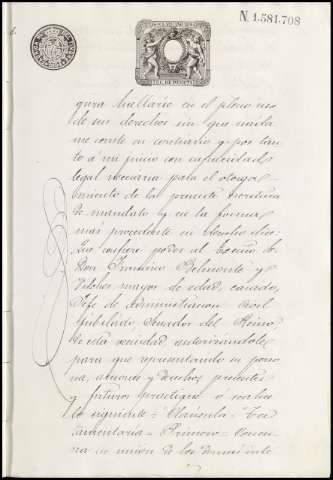 N. 1.581.708
gura hallarse en el pleno uso
de sus derechos sin que nada
me conste en contrario y por tan
to á mi juicio con capacidad
legal necesaria para el otorga
miento de la presente escritura
de mandato y en la forma
más procedente en derecho di
confiere poder al Excmo Sr
Don Belmonte y
Vilches mayor de edad, casado,
Jefe de Administracion Civil
Jubilado, Senador del Reino,
de esta vecindad autorizandole
para que representando su perso
na, acciones y derechos presentes
y futuros practique o realice
lo siguiente = Clausula = Tes
tamentaria = Primero =
en union de los demás inte